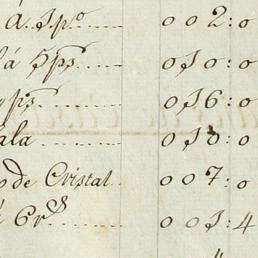 á 3p.º ...... 0 0 2:0
lá 5p.s ...... 0 10:0
p.s ...... 0 16:0
ala ...... 0 18:0
de Cristal .. 0 0 7:0
6r.s ...... 0 0 1:4